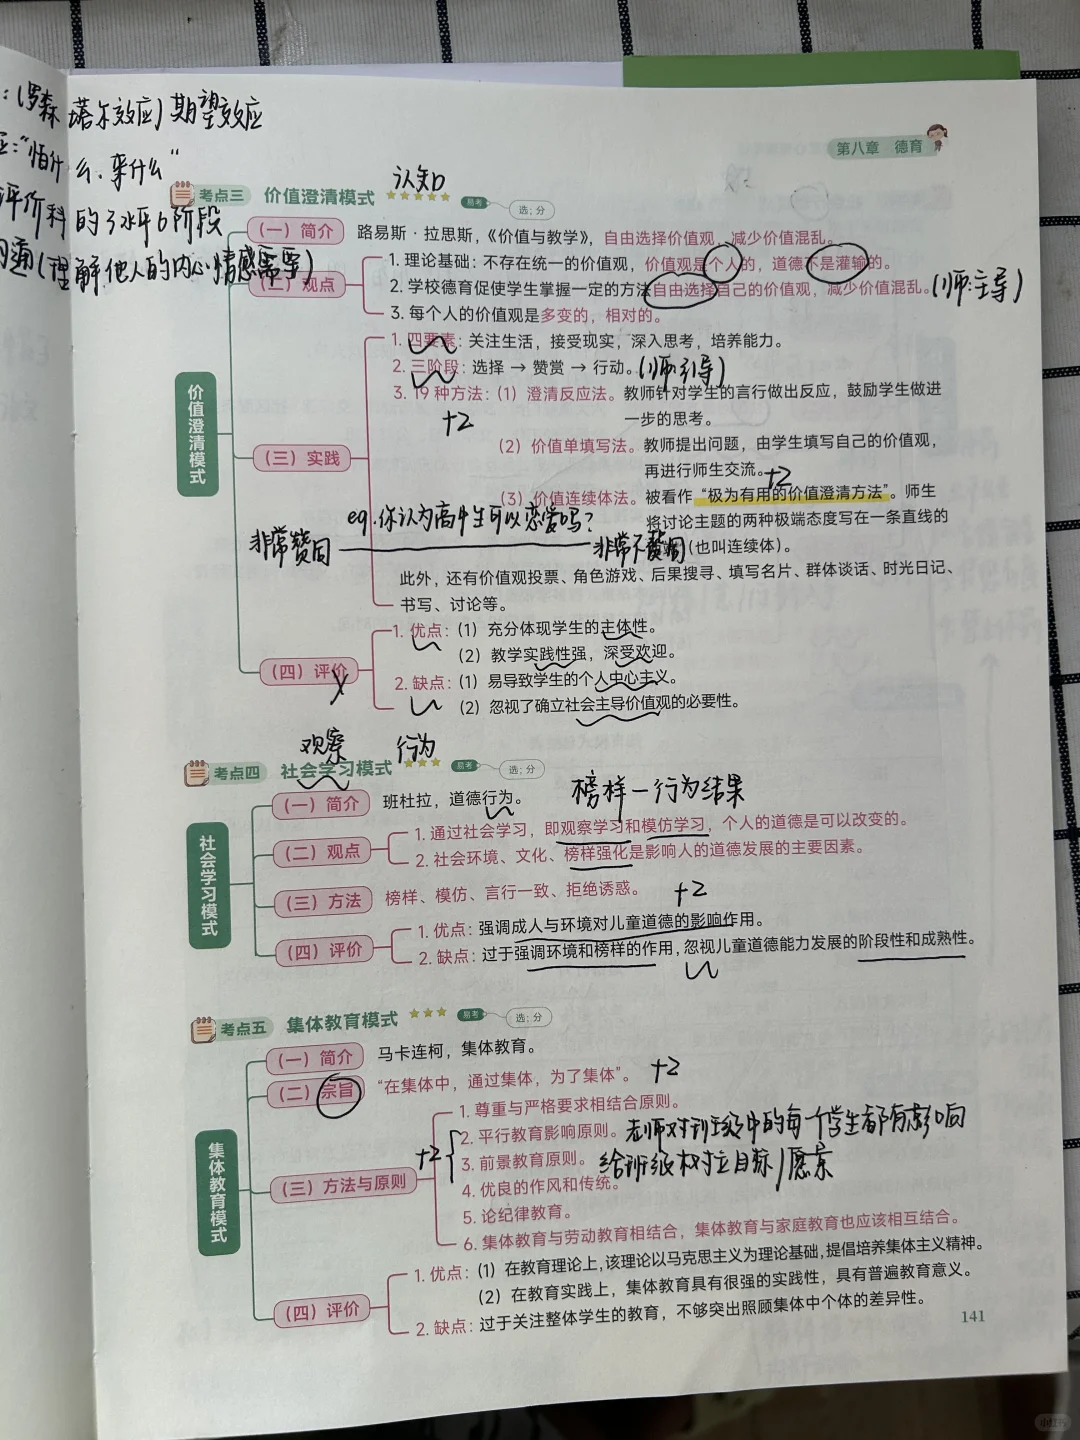 ：(罗森塔尔效应)期望效应
应："怕什么、来什么"
评价科的3水平6阶段
(理解他人的内心情感需要)
第八章 德育
认知
考点三 价值澄清模式 ★★★★★ 易考 选；分
价值澄清模式
（一）简介 路易斯·拉思斯，《价值与教学》，自由选择价值观，减少价值混乱。
（二）观点
1. 理论基础：不存在统一的价值观，价值观是个人的，道德不是灌输的。
2. 学校德育促使学生掌握一定的方法自由选择自己的价值观，减少价值混乱。(师:主导)
3. 每个人的价值观是多变的，相对的。
（三）实践
1. 四要素：关注生活，接受现实，深入思考，培养能力。
2. 三阶段：选择 → 赞赏 → 行动。(师:引导)
3. 19 种方法：（1）澄清反应法。教师针对学生的言行做出反应，鼓励学生做进
一步的思考。
+2
（2）价值单填写法。教师提出问题，由学生填写自己的价值观，
再进行师生交流。
+2
（3）价值连续体法。被看作“极为有用的价值澄清方法”。师生
将讨论主题的两种极端态度写在一条直线的
（也叫连续体）。
eg.你认为高中生可以恋爱吗?
非常赞同 非常不赞同
此外，还有价值观投票、角色游戏、后果搜寻、填写名片、群体谈话、时光日记、
书写、讨论等。
（四）评价
1. 优点：（1）充分体现学生的主体性。
（2）教学实践性强，深受欢迎。
2. 缺点：（1）易导致学生的个人中心主义。
（2）忽视了确立社会主导价值观的必要性。
观察 行为
考点四 社会学习模式 ★★★ 易考 选；分
社会学习模式
（一）简介 班杜拉，道德行为。 榜样—行为结果
（二）观点
1. 通过社会学习，即观察学习和模仿学习，个人的道德是可以改变的。
2. 社会环境、文化、榜样强化是影响人的道德发展的主要因素。
（三）方法 榜样、模仿、言行一致、拒绝诱惑。 +2
（四）评价
1. 优点：强调成人与环境对儿童道德的影响作用。
2. 缺点：过于强调环境和榜样的作用，忽视儿童道德能力发展的阶段性和成熟性。
考点五 集体教育模式 ★★★ 易考 选；分
集体教育模式
（一）简介 马卡连柯，集体教育。
（二）宗旨 “在集体中，通过集体，为了集体”。 +2
（三）方法与原则
1. 尊重与严格要求相结合原则。
+2
2. 平行教育影响原则。老师对班级中的每个学生都有影响
3. 前景教育原则。给班级树立目标/愿景
4. 优良的作风和传统。
5. 论纪律教育。
6. 集体教育与劳动教育相结合，集体教育与家庭教育也应该相互结合。
（四）评价
1. 优点：（1）在教育理论上，该理论以马克思主义为理论基础，提倡培养集体主义精神。
（2）在教育实践上，集体教育具有很强的实践性，具有普遍教育意义。
2. 缺点：过于关注整体学生的教育，不够突出照顾集体中个体的差异性。
141
小红书